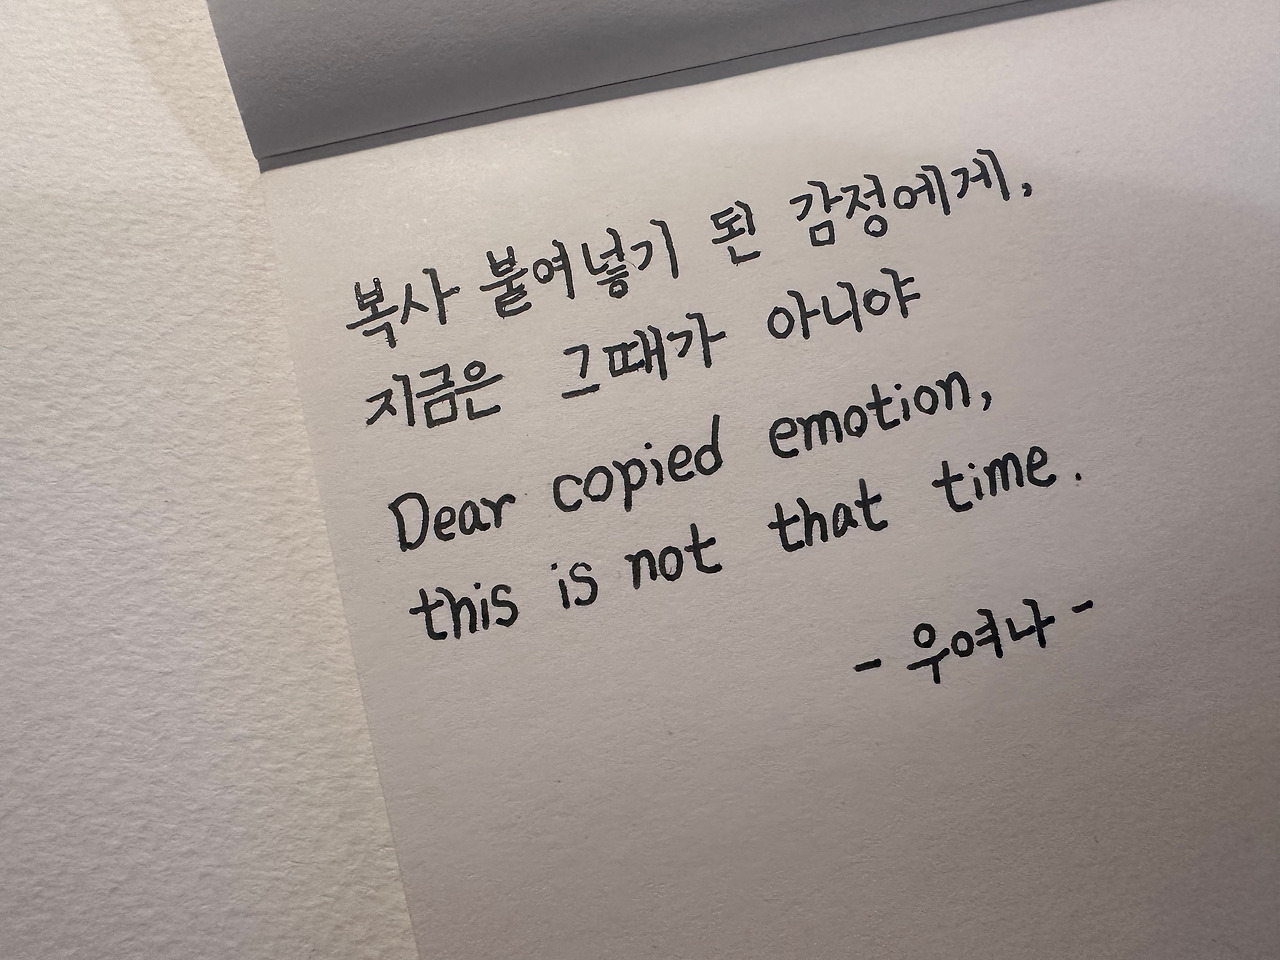 복사 붙여넣기 된 감정에게,
지금은 그때가 아니야
Dear copied emotion,
this is not that time.
- 우여나 -